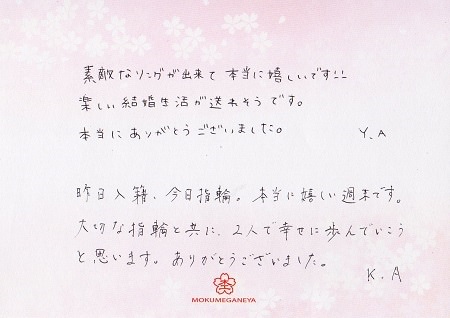 素敵なリングが出来て本当に嬉しいです!!
楽しい結婚生活が送れそうです。
本当にありがとうございました。 Y.A
昨日入籍、今日指輪。本当に嬉しい週末です。
大切な指輪と共に、2人で幸せに歩んでいこう
と思います。ありがとうございました。
K.A
MOKUMEGANEYA